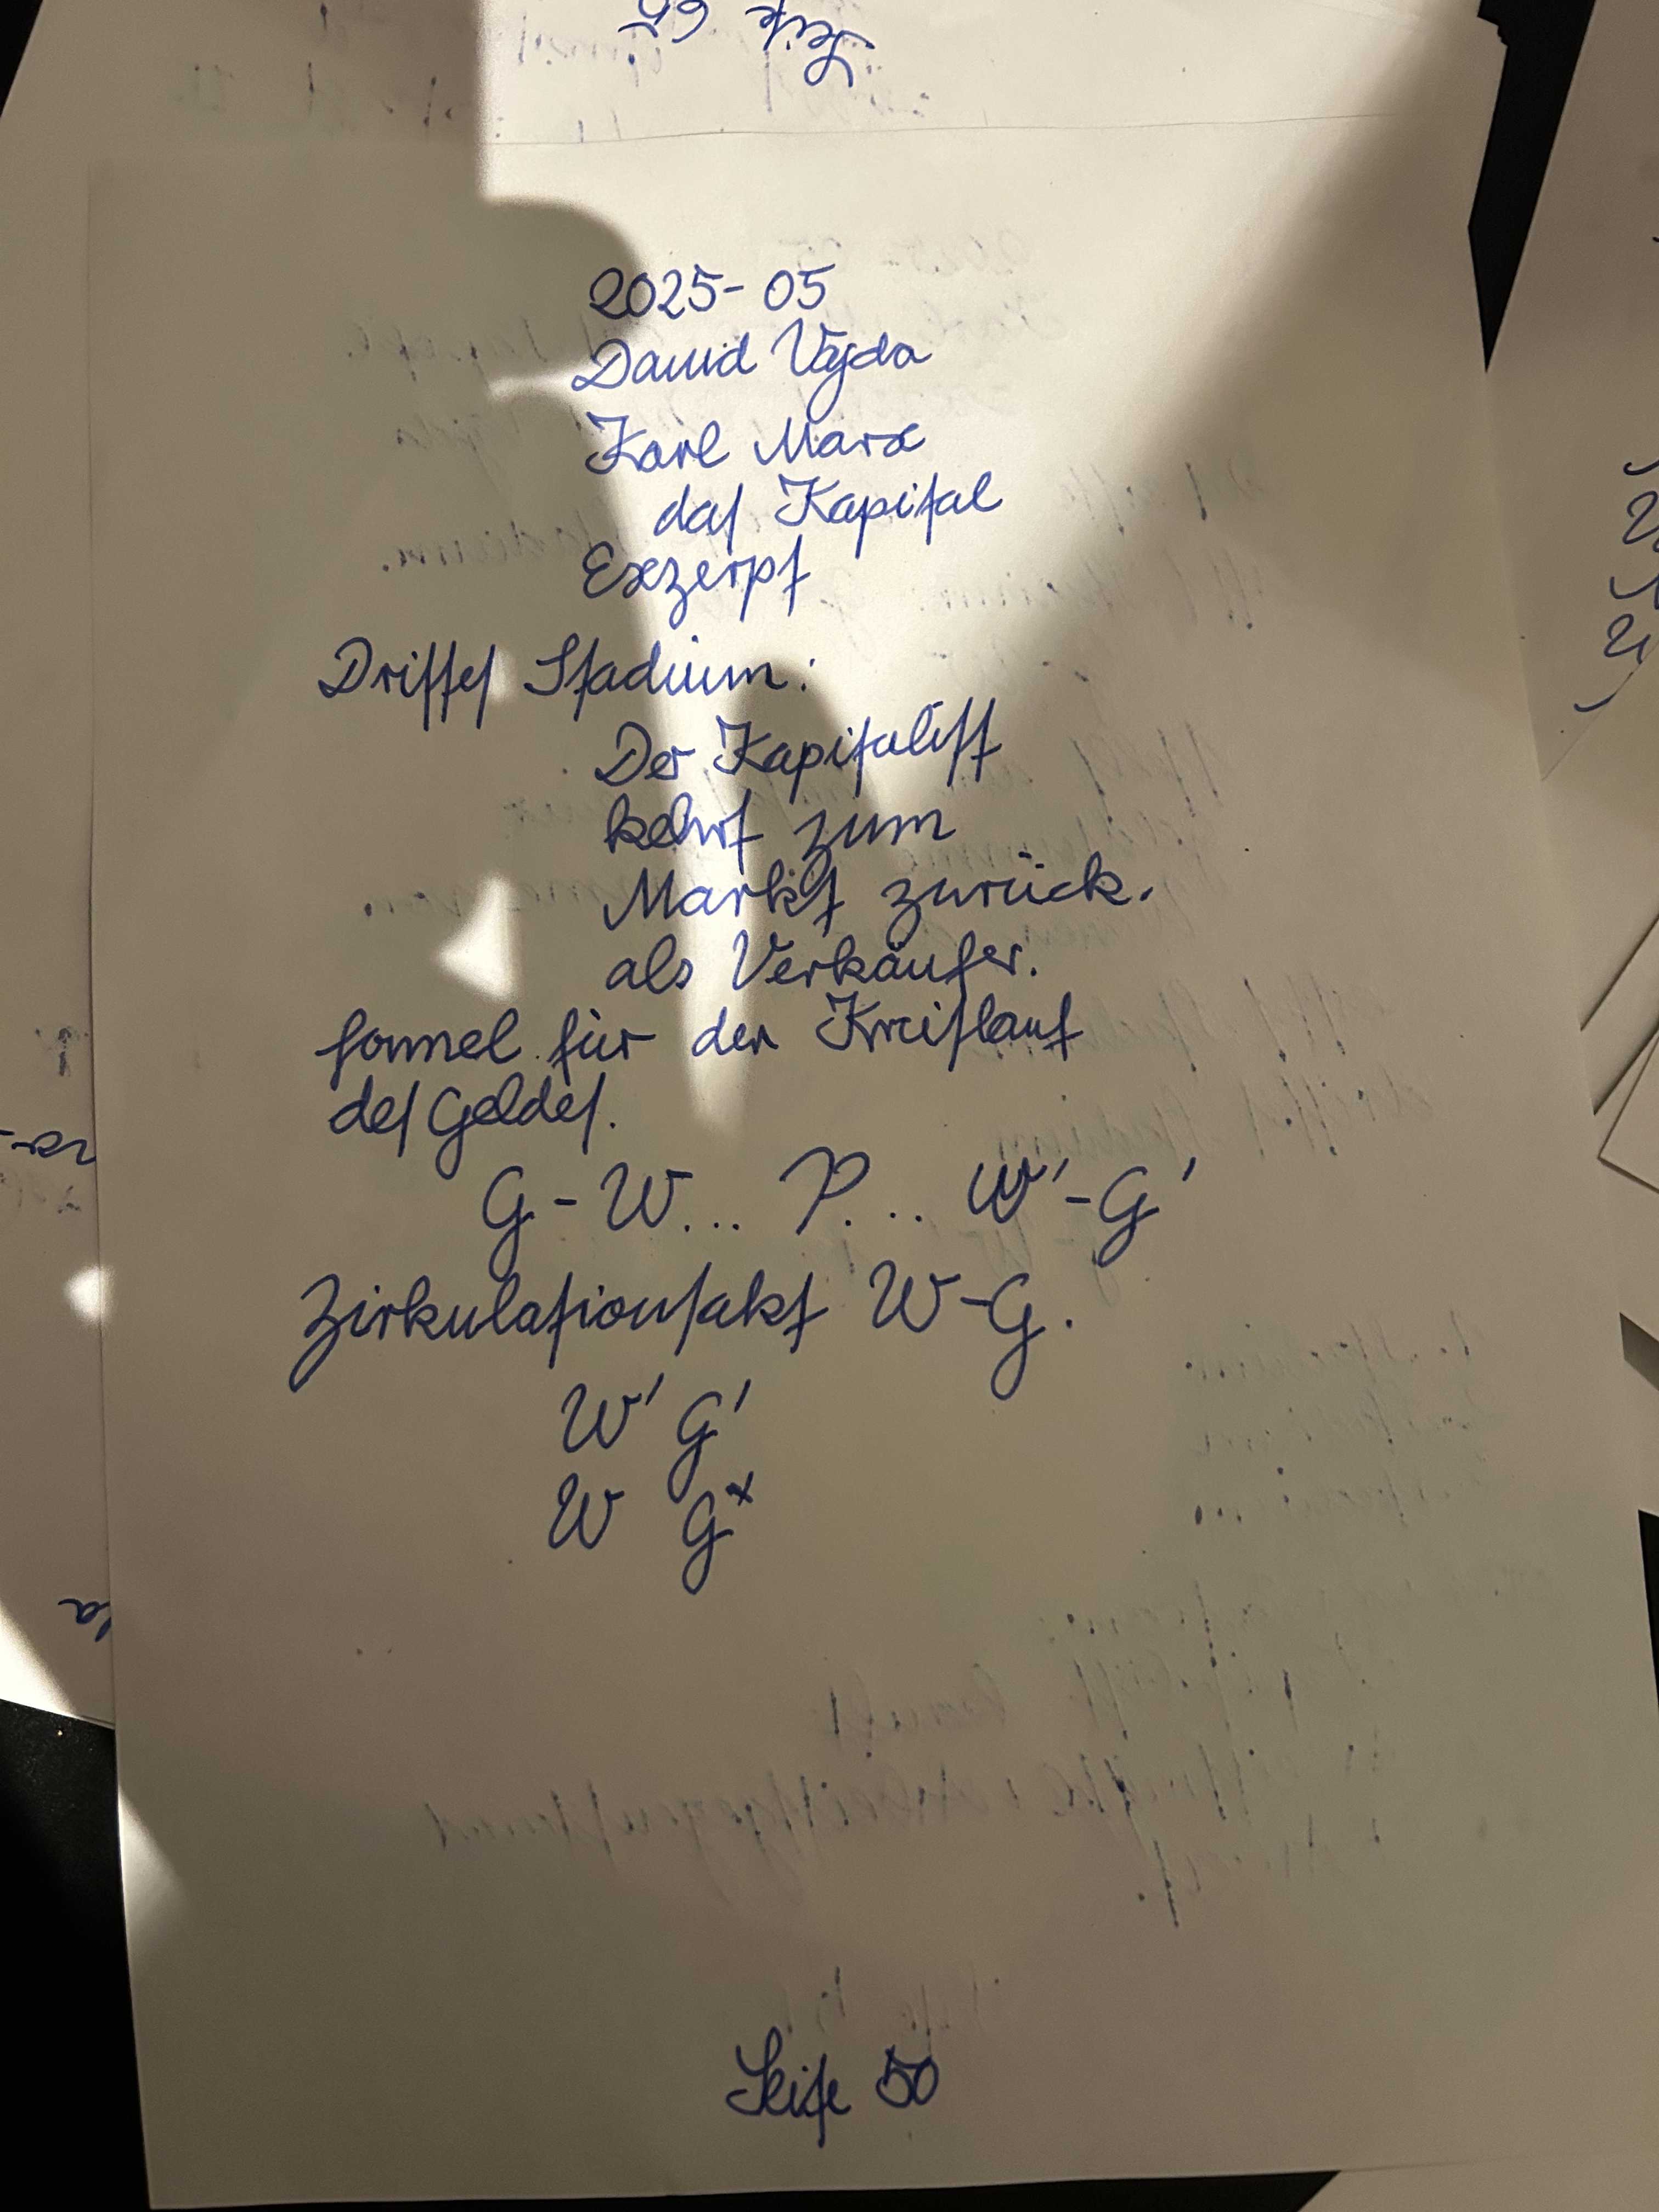 Seite 65
2025-05
David Vajda
Karl Marx
das Kapital
Exzerpt
Drittes Stadium:
Der Kapitalist
kehrt zum
Markt zurück.
als Verkäufer.
formel für den Kreislauf
des Geldes.
G-W... P... W'-G'
Zirkulationsakt W-G.
W' G'
W G*
Seite 50